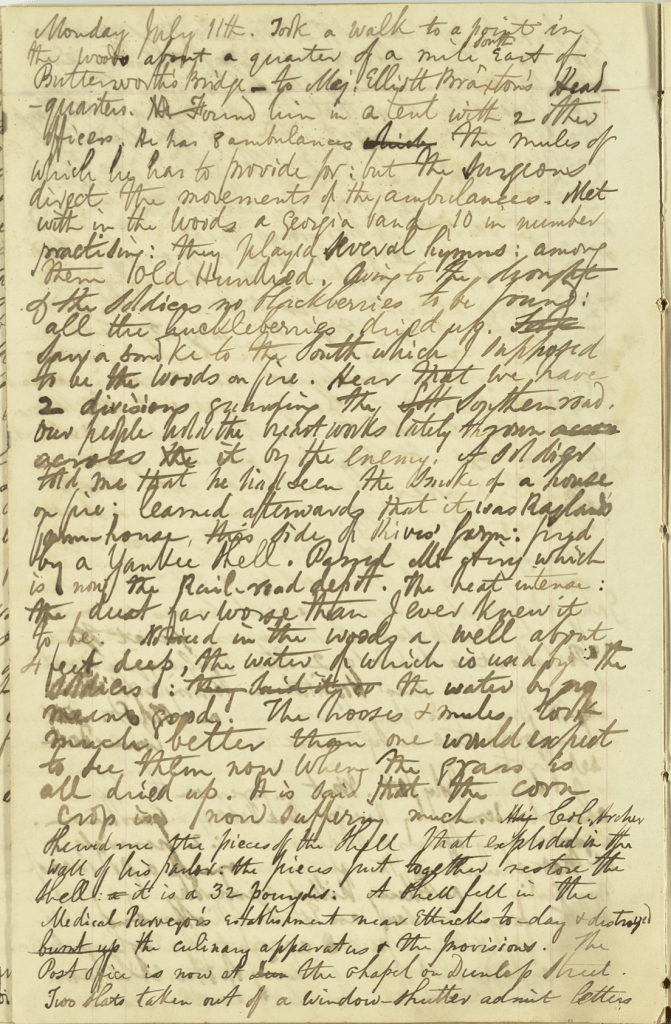 Monday July 11th. Took a walk to a point in
the woods about a quarter of a mile South East of
Butterworth's Bridge - to Maj. Elliott Braxton's Head-
-quarters. Found him in a tent with 2 other
officers. He has 8 ambulances which the mules of
which he has to provide for: but the surgeons
direct the movements of the ambulances. Met
with in the woods a Georgia band, 10 in number
practising: they played several hymns: among
them Old Hundred. Owing to the drought
& the soldiers no blackberries to be found:
all the huckleberries dried up.
Saw a smoke to the South which I supposed
to be the woods on fire. Hear that we have
2 divisions guarding the Southern road.
Our people hold the breast works lately thrown
across the it by the enemy. A soldier
told me that he had seen the smoke of a house
on fire: learned afterwards that it was Ragland's
farm-house, this side of Rives' farm: fired
by a Yankee shell. Passed Mt Airy which
is now the Rail-road depot. The heat intense:
the dust far worse than I ever knew it
to be. Noticed in the woods a well about
4 feet deep, the water of which is used by the
soldiers: they said it is the water by no
means good. The horses & mules look
much better than one would expect
to see them now when the grass is
all dried up. It is said that the corn
crop is now suffering much. Col. Archer
shewed me the pieces of the shell that exploded in the
wall of his parlor: the pieces put together restore the
shell: it is a 32 Pounder. A shell fell in the
Medical Purveyor's establishment near Ettricks to-day & destroyed
burnt up the culinary apparatus & the provisions. The
Post Office is now at the chapel on Dunlop Street.
Two slats taken out of a window-shutter admit letters